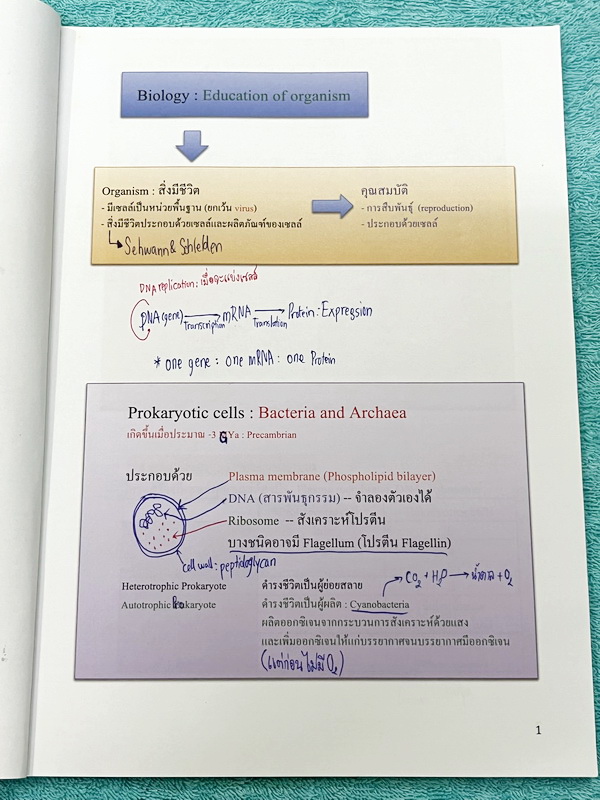 Biology : Education of organism
Organism : สิ่งมีชีวิต
- มีเซลล์เป็นหน่วยพื้นฐาน (ยกเว้น virus)
- สิ่งมีชีวิตประกอบด้วยเซลล์และผลิตภัณฑ์ของเซลล์
Schwann & Schleiden
คุณสมบัติ
- การสืบพันธุ์ (reproduction)
- ประกอบด้วยเซลล์
DNA replication : เมื่อจะแบ่งเซลล์
DNA (gene) → mRNA → Protein : Expression
Transcription Translation
* one gene : one mRNA : one Protein
Prokaryotic cells : Bacteria and Archaea
เกิดขึ้นเมื่อประมาณ -3 GYa : Precambrian
ประกอบด้วย
Plasma membrane (Phospholipid bilayer)
DNA (สารพันธุกรรม) -- จำลองตัวเองได้
Ribosome -- สังเคราะห์โปรตีน
บางชนิดอาจมี Flagellum (โปรตีน Flagellin)
cell wall : peptidoglycan
CO2 + H2O → น้ำตาล + O2
Heterotrophic Prokaryote ดำรงชีวิตเป็นผู้ย่อยสลาย
Autotrophic Prokaryote ดำรงชีวิตเป็นผู้ผลิต : Cyanobacteria
ผลิตออกซิเจนจากกระบวนการสังเคราะห์ด้วยแสง
และเพิ่มออกซิเจนให้แก่บรรยากาศจนบรรยากาศมีออกซิเจน
(แต่ก่อนไม่มี O2)
1